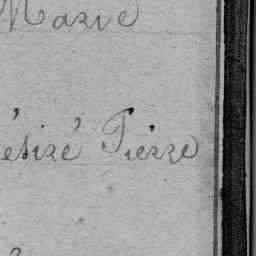 Marie
ésiré Pierre